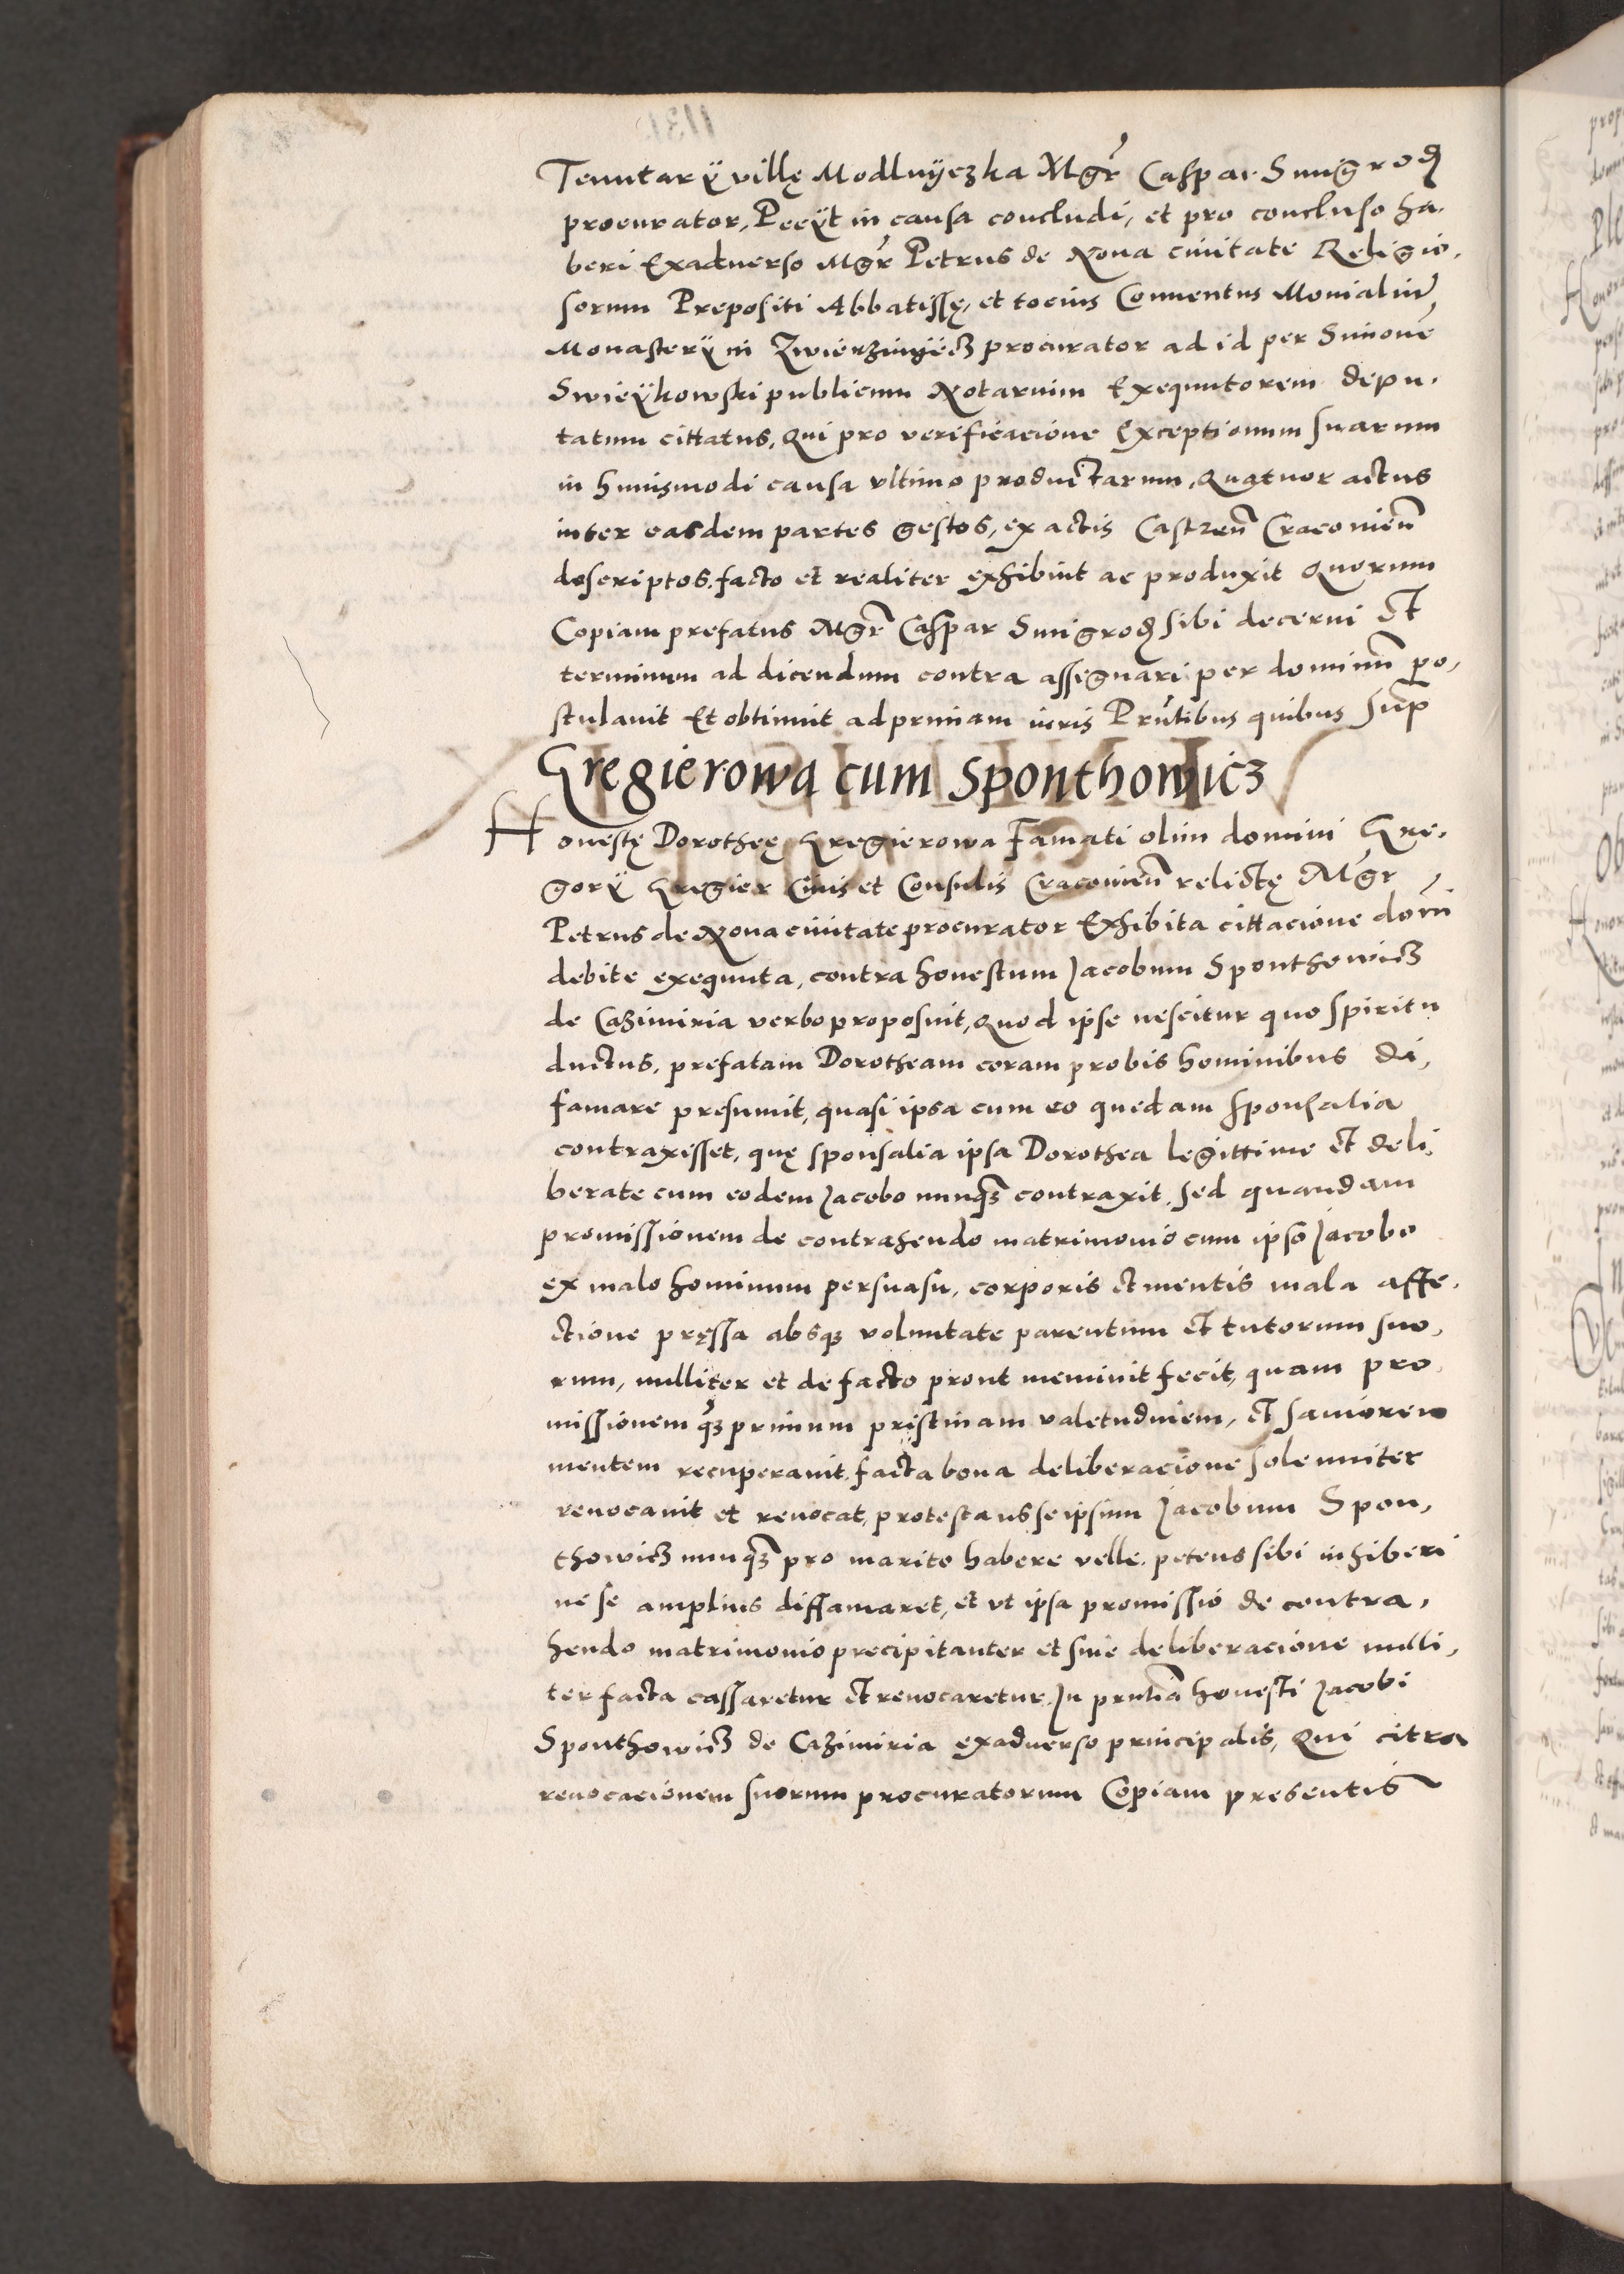 Tenutarÿ villę Modlnyczka Mgr̃ Caspar Smigrod
procurator, Pecÿt in causa concludi, et pro concluso ha,
beri Exaduerso Mgr̃ Petrus de Noua ciuitate Religio,
sorum Prepositi Abbatissę, et tocius Conuentus Monialiũ
Monasterÿ in Zwierzinÿecz procurator ad id per Simonẽ
Swieÿkowski publicum Notarium Exequutorem depu,
tatum cittatus, Qui pro verificacione Exceptionum suarum
in huiusmodi causa vltimo productarum, Quatuor actus
inter easdem partes gestos, ex actis Castreñ Cracouieñ
descriptos, facto et realiter exhibuit ac produxit Quorum
Copiam prefatus Mgr̃ Caspar Smigrod sibi decerni Et
terminum ad dicendum contra assignari per dominũ po,
stulauit Et obtinuit ad primam iuris Prñtibus quibus sup̃
Gregierowa cum Sponthowicz
Honestę Dorotheę Gregierowa Famati olim domini Gre,
gorÿ Gregier Ciuis et Consulis Cracouieñ relictę Mgr̃
Petrus de Noua ciuitate procurator Exhibita cittacione dom̃
debite exequuta, contra honestum Jacobum Sponthowicz
de Cazimiria verbo proposuit, Quod ipse nescitur quo spiritu
ductus, prefatam Dorotheam coram probis hominibus di,
famare presumit, quasi ipsa cum eo quedam sponsalia
contraxisset, quę sponsalia ipsa Dorothea legittime et deli,
berate cum eodem Jacobo nunq̃ contraxit, sed quandam
promissionem de contrahendo matrimonio cum ipso Jacobo
ex malo hominum persuasu, corporis et mentis mala affe,
ctione pręssa absq; voluntate parentum et tutorum suo,
rum, nulliter et de facto prout meminit fecit, quam pro
missionem q̃ primum pristinam valetudinem, et saniorem
mentem recuperauit, facta bona deliberacione solenniter
reuocauit et reuocat, protestans se ipsum Jacobum Spon,
thowicz nunq̃ pro marito habere velle, petens sibi inhiberi
ne se amplius diffamaret, et vt ipsa promissio de contra,
hendo matrimonio precipitanter et sine deliberacione nulli,
ter facta cassaretur et reuocaretur, In prñtia honesti Jacobi
Sponthowicz de Cazimiria exaduerso principalis, Qui citra
reuocacionem suorum procuratorum Copiam presentis